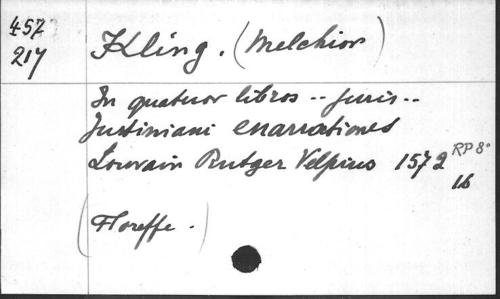 457
217
Kling. (Melchior)
In quatuor libros -- juris --
Justiniani enarrationes
Louvain Rutger Velpius 1572 RP 8°
16
(Floreffe.)